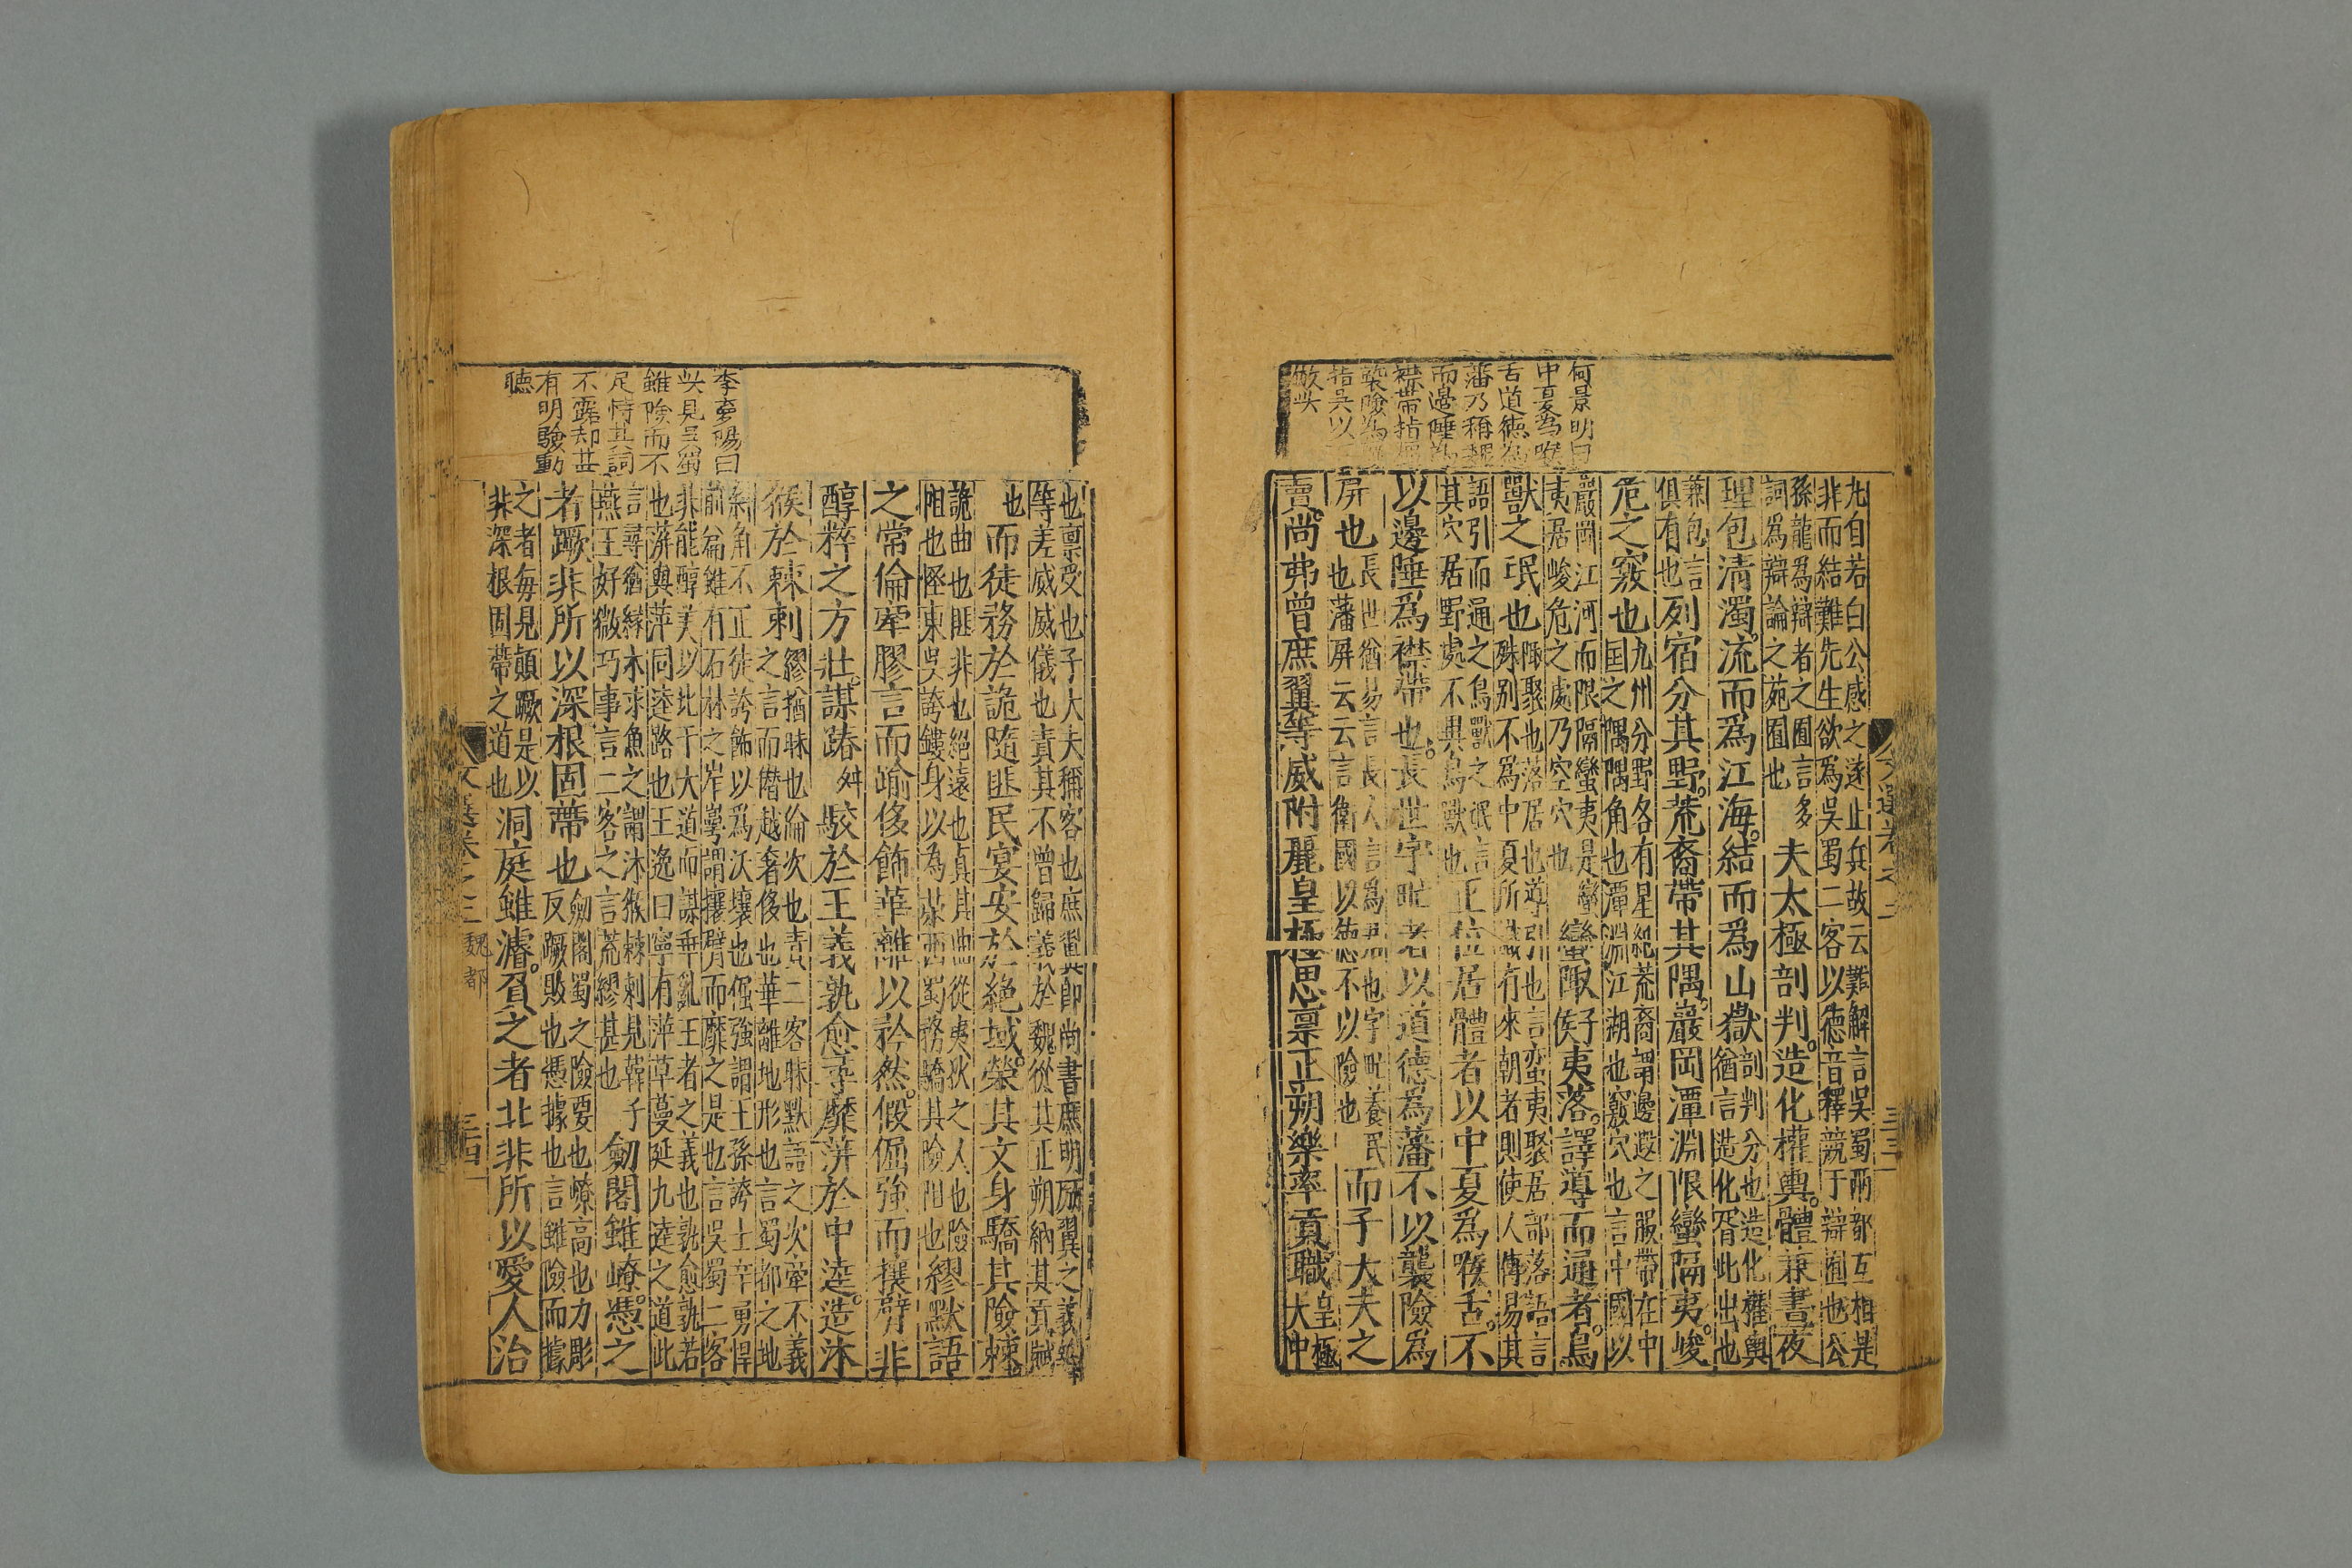 何景明曰
中夏為喉
舌道德為
藩乃稱魏
而邊陲為
襟帶指蜀
襲險為屏
指吳以
倣吳
九自若白公感之遂止兵故云難解言吳蜀兩都互相是
非而結難先生欲為吳蜀二客以德音釋競于辯囿也公
孫龍為辯者之囿言多
詞為辯論之苑囿也
夫太極剖判。造化權輿。體兼晝夜
理包清濁。流而為江海。結而為山嶽
剖判分也造化權輿
猶言造化胥此出也
兼包言
俱有也
列宿分其野。荒裔帶其隅。巖岡潭淵限蠻隔夷。峻
危之竅也
九州分野各有星紀荒裔謂邊遐之服帶在中
国之隅隅角也潭淵江湖也竅穴也言中國以
巖岡江河而限隔蠻夷是蠻
夷居峻危之處乃空穴也
蠻陬侯子夷落。譯導而通者。鳥
獸之氓也
陬聚也落居也導引也言蛮夷聚居部落語言
殊别不為中夏所識有來朝者則使人傳易其
語引而通之鳥獸之氓言
其穴居野處不異鳥獸也
正位居體者以中夏為喉舌。不
以邊陲為襟帶也。長世字甿者以道德為藩不以襲險為
屏也
長世猶易言長人言為君也字甿養民
也藩屏云云言衛國以德不以險也
而子大夫之
賣。尚弗曾庶翼等威附麗皇極思禀正朔樂率貢職
皇極
大中
也禀受也子大夫稱客也庶翼即尚書庶明厲翼之義
等差威威儀也責其不曾歸義於魏從其正朔納其貢賦
也
而徒務於詭隨匪民宴安於絶域。榮其文身驕其險棘
詭曲也匪非也絕遠也責其曲從夷狄之人也險
阻也怪東吳誇鏤身以為榮西蜀務驕其險阻也
繆默語
之常倫牽膠言而踰侈飾華離以矜然。假倔強而攘臂非
醇粹之方壯。謀踳舛駮於王義孰愈尋靡蓱於中逵。造沐
猴於棘刺
繆猶昧也倫次也責二客昧默語之次牽不義
之言而僣越奢侈也華離地形也言蜀都之地
斜角不正徒誇飾以為沃壤也倔強謂王孫誇士卒勇悍
前篇雖有石林之岸崿謂攘臂而靡之是也言吳蜀二客
非能醇美以比于大道而謀乖亂王者之義也孰愈孰若
也蓱與萍同逵路也王逸曰寧有萍草蔓延九逵之道此
言尋猶緣木求魚之謂沐猴棘刺見韓子
燕王好微巧事言二客之言荒繆甚也
劒閣雖嶛。憑之
者蹶非所以深根固蔕也
劒閣蜀之險要也嶛高也力彫
反蹶敗也憑據也言雖險而據
之者毎見顛蹶是以
非深根固蔕之道也
洞庭雖濬。負之者北非所以愛人治
李夢陽曰
吳見吳蜀
雖險而不
足恃其詞
不露却甚
有明驗動
聽
文選卷之三
魏都
三四